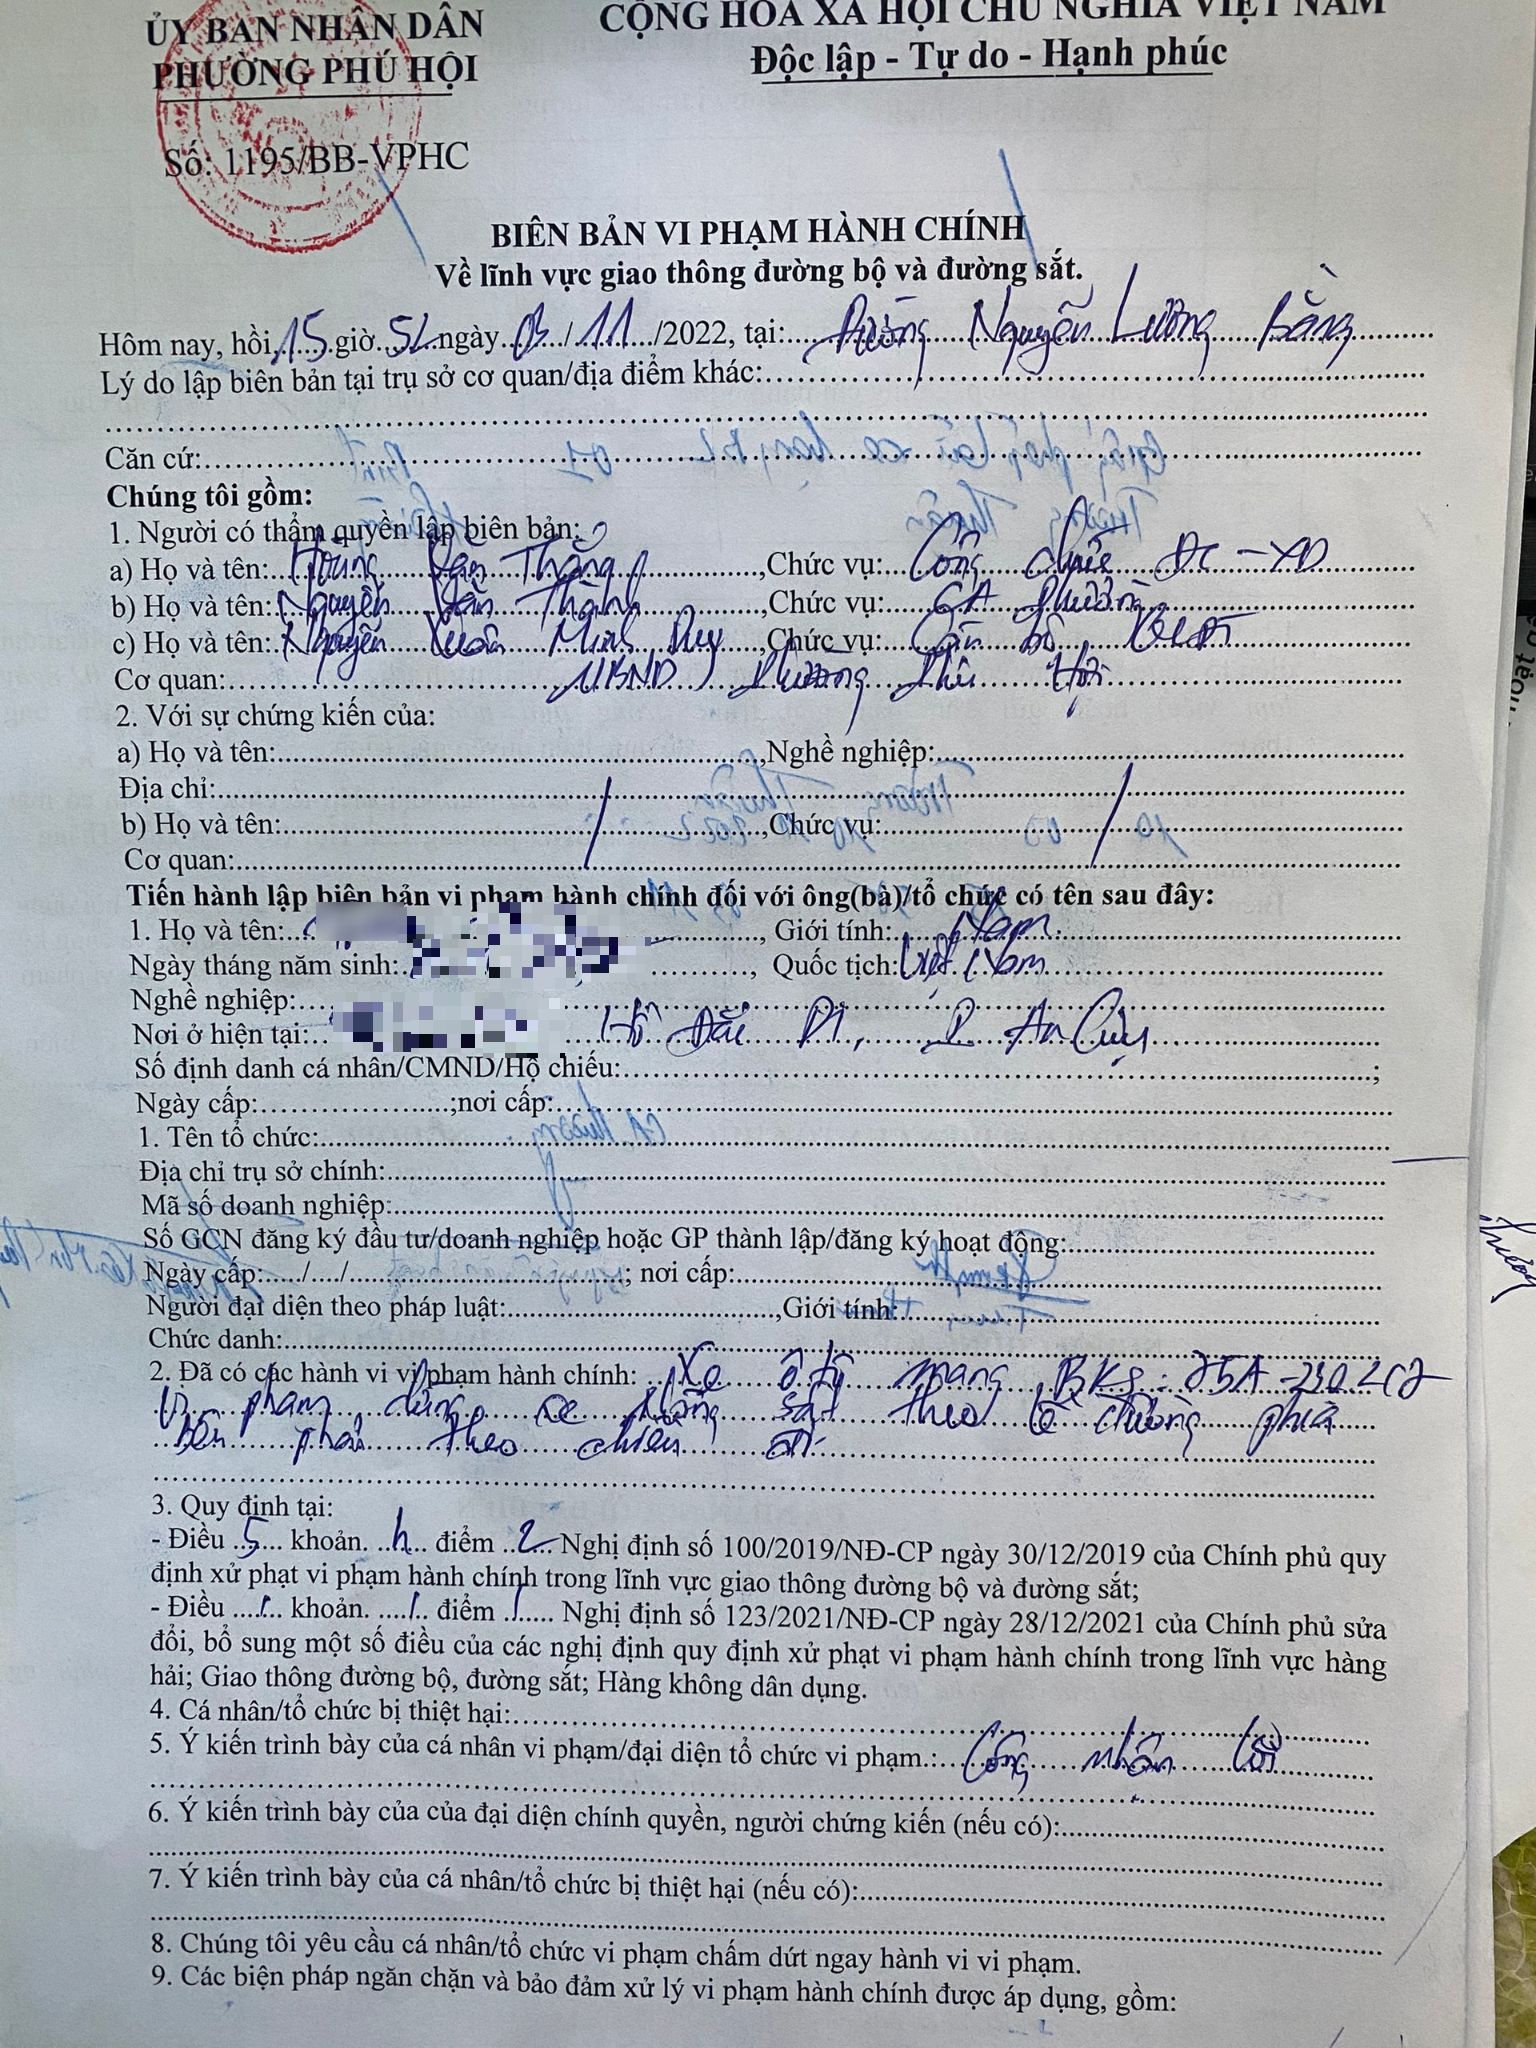 ỦY BAN NHÂN DÂN
PHƯỜNG PHÚ HỘI
CỘNG HÒA XÃ HỘI CHỦ NGHĨA VIỆT NAM
Độc lập - Tự do - Hạnh phúc
Số: 1195/BB-VPHC
BIÊN BẢN VI PHẠM HÀNH CHÍNH
Về lĩnh vực giao thông đường bộ và đường sắt.
Hôm nay, hồi 15 giờ 52 ngày 03/11/2022, tại: Đường Nguyễn Lương Bằng
Lý do lập biên bản tại trụ sở cơ quan/địa điểm khác:
Căn cứ:
Chúng tôi gồm:
1. Người có thẩm quyền lập biên bản:
a) Họ và tên: Hoàng Văn Thắng, Chức vụ: Công chức ĐC-XD
b) Họ và tên: Nguyễn Văn Thành, Chức vụ: CA Phường
c) Họ và tên: Nguyễn Xuân Minh Duy, Chức vụ: Cán bộ
Cơ quan: UBND Phường Phú Hội
2. Với sự chứng kiến của:
a) Họ và tên:, Nghề nghiệp:
Địa chỉ:
b) Họ và tên:, Chức vụ:
Cơ quan:
Tiến hành lập biên bản vi phạm hành chính đối với ông(bà)/tổ chức có tên sau đây:
1. Họ và tên:, Giới tính: Nam
Ngày tháng năm sinh:, Quốc tịch: Việt Nam
Nghề nghiệp:
Nơi ở hiện tại: Hồ Đắc Di, P. An Cựu
Số định danh cá nhân/CMND/Hộ chiếu:;
Ngày cấp:;nơi cấp:
1. Tên tổ chức:
Địa chỉ trụ sở chính:
Mã số doanh nghiệp:
Số GCN đăng ký đầu tư/doanh nghiệp hoặc GP thành lập/đăng ký hoạt động:
Ngày cấp:..../..../; nơi cấp:
Người đại diện theo pháp luật:, Giới tính:
Chức danh:
2. Đã có các hành vi vi phạm hành chính: Xe ô tô mang BKS: 75A-
Vi phạm dừng xe không sát theo lề đường phía
bên phải theo chiều đi
3. Quy định tại:
- Điều 5 khoản h điểm 2 Nghị định số 100/2019/NĐ-CP ngày 30/12/2019 của Chính phủ quy
định xử phạt vi phạm hành chính trong lĩnh vực giao thông đường bộ và đường sắt;
- Điều / khoản / điểm / Nghị định số 123/2021/NĐ-CP ngày 28/12/2021 của Chính phủ sửa
đổi, bổ sung một số điều của các nghị định quy định xử phạt vi phạm hành chính trong lĩnh vực hàng
hải; Giao thông đường bộ, đường sắt; Hàng không dân dụng.
4. Cá nhân/tổ chức bị thiệt hại:
5. Ý kiến trình bày của cá nhân vi phạm/đại diện tổ chức vi phạm.: Công nhận lỗi
6. Ý kiến trình bày của của đại diện chính quyền, người chứng kiến (nếu có):
7. Ý kiến trình bày của cá nhân/tổ chức bị thiệt hại (nếu có):
8. Chúng tôi yêu cầu cá nhân/tổ chức vi phạm chấm dứt ngay hành vi vi phạm.
9. Các biện pháp ngăn chặn và bảo đảm xử lý vi phạm hành chính được áp dụng, gồm: